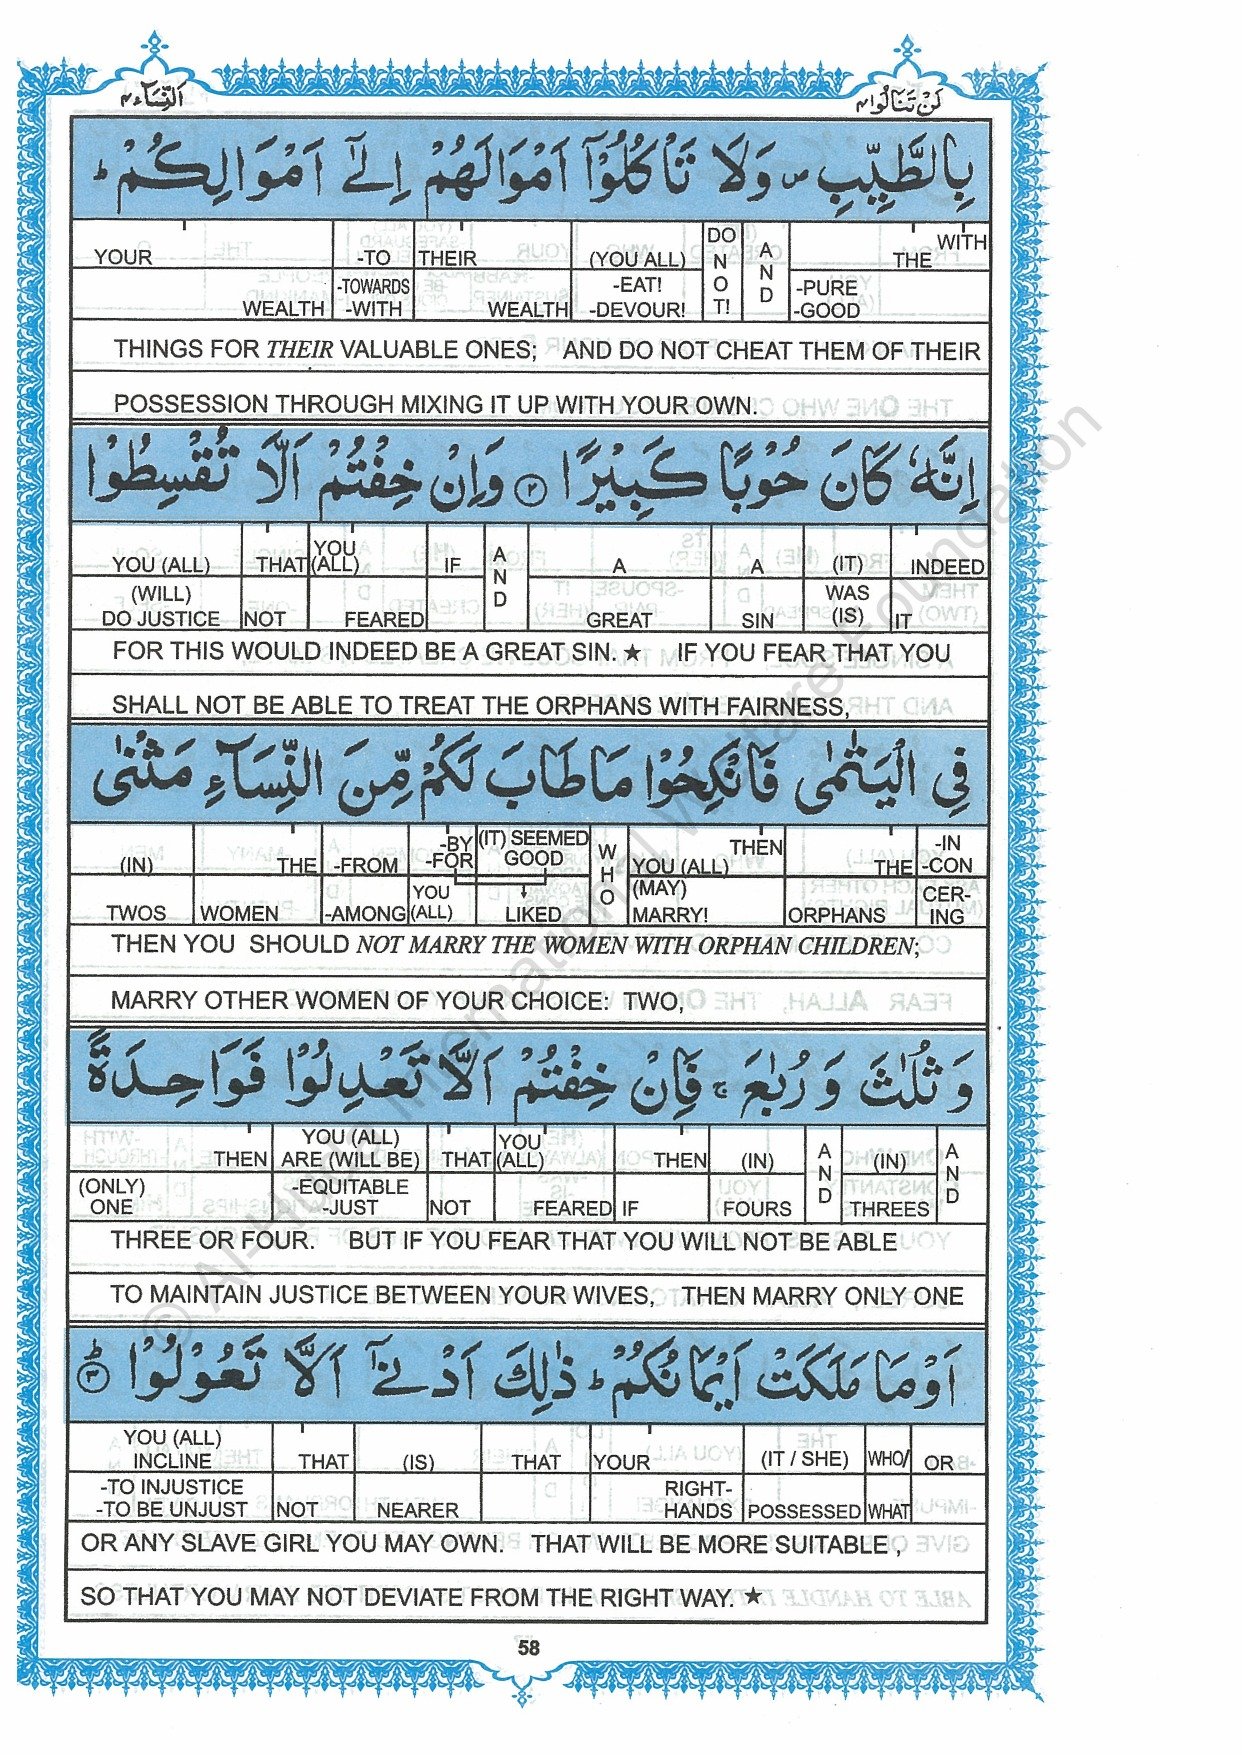 اَلنِّسَآء ٤
لَنْ تَنَالُوا ٤
بِالطَّيِّبِ ص وَلَا تَاْكُلُوْٓا اَمْوَالَهُمْ اِلٰٓى اَمْوَالِكُمْ ط
YOUR WEALTH -TO -TOWARDS -WITH THEIR WEALTH (YOU ALL) -EAT! -DEVOUR! DO NOT! AND WITH THE -PURE -GOOD
THINGS FOR THEIR VALUABLE ONES; AND DO NOT CHEAT THEM OF THEIR
POSSESSION THROUGH MIXING IT UP WITH YOUR OWN.
اِنَّهٗ كَانَ حُوْبًا كَبِيْرًا ٢ وَاِنْ خِفْتُمْ اَلَّا تُقْسِطُوْا
YOU (ALL) (WILL) DO JUSTICE THAT NOT YOU (ALL) FEARED IF AND A GREAT A SIN (IT) WAS (IS) INDEED IT
FOR THIS WOULD INDEED BE A GREAT SIN. ★ IF YOU FEAR THAT YOU
SHALL NOT BE ABLE TO TREAT THE ORPHANS WITH FAIRNESS,
فِي الْيَتٰمٰى فَانْكِحُوْا مَا طَابَ لَكُمْ مِّنَ النِّسَآءِ مَثْنٰى
(IN) TWOS THE WOMEN -FROM -AMONG -BY -FOR YOU (ALL) (IT) SEEMED GOOD LIKED WHO THEN YOU (ALL) (MAY) MARRY! THE ORPHANS -IN -CON CER- ING
THEN YOU SHOULD NOT MARRY THE WOMEN WITH ORPHAN CHILDREN;
MARRY OTHER WOMEN OF YOUR CHOICE: TWO,
وَثُلٰثَ وَرُبٰعَ ج فَاِنْ خِفْتُمْ اَلَّا تَعْدِلُوْا فَوَاحِدَةً
THEN (ONLY) ONE YOU (ALL) ARE (WILL BE) -EQUITABLE -JUST THAT NOT YOU (ALL) FEARED THEN IF (IN) FOURS AND (IN) THREES AND
THREE OR FOUR. BUT IF YOU FEAR THAT YOU WILL NOT BE ABLE
TO MAINTAIN JUSTICE BETWEEN YOUR WIVES, THEN MARRY ONLY ONE
اَوْ مَا مَلَكَتْ اَيْمَانُكُمْ ط ذٰلِكَ اَدْنٰٓى اَلَّا تَعُوْلُوْا ط ٣
YOU (ALL) INCLINE -TO INJUSTICE -TO BE UNJUST THAT NOT (IS) NEARER THAT YOUR RIGHT- HANDS (IT / SHE) POSSESSED WHO/ WHAT OR
OR ANY SLAVE GIRL YOU MAY OWN. THAT WILL BE MORE SUITABLE ,
SO THAT YOU MAY NOT DEVIATE FROM THE RIGHT WAY. ★
58